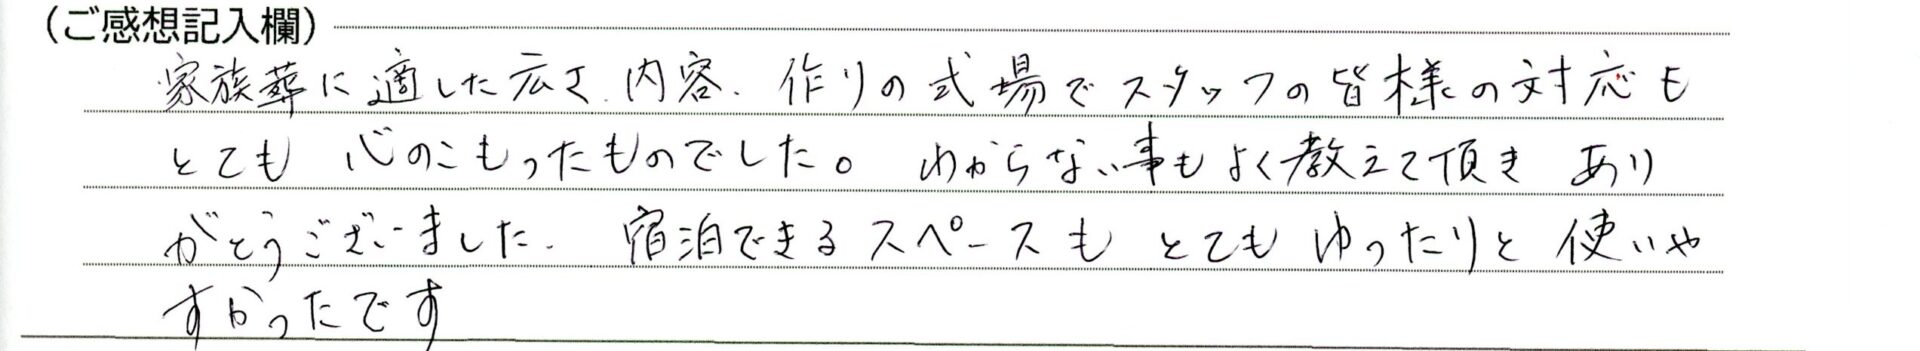 （ご感想記入欄）
家族葬に適した広さ、内容、作りの式場でスタッフの皆様の対応も
とても 心のこもったものでした。 わからない事もよく教えて頂き あり
がとうございました。 宿泊できるスペースも とても ゆったりと 使いや
すかったです